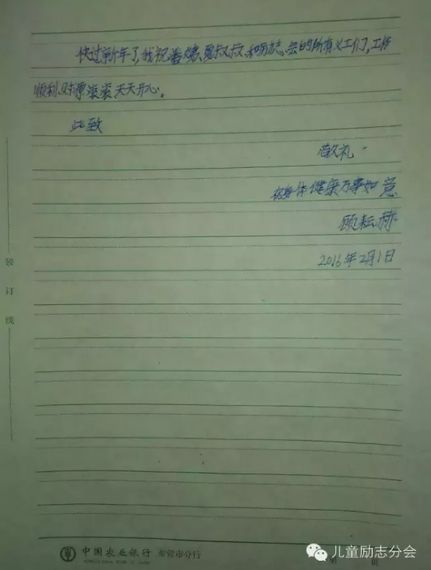 快过新年了,我祝善缘、夏叔叔、和励志、会的所有义工们,工作
顺利、财源滚滚天天开心。
此致
敬礼。
祝身体健康万事如意
顾耘赫
2016年2月1日
装订线
中国农业银行 东营市分行
第 页
儿童励志分会